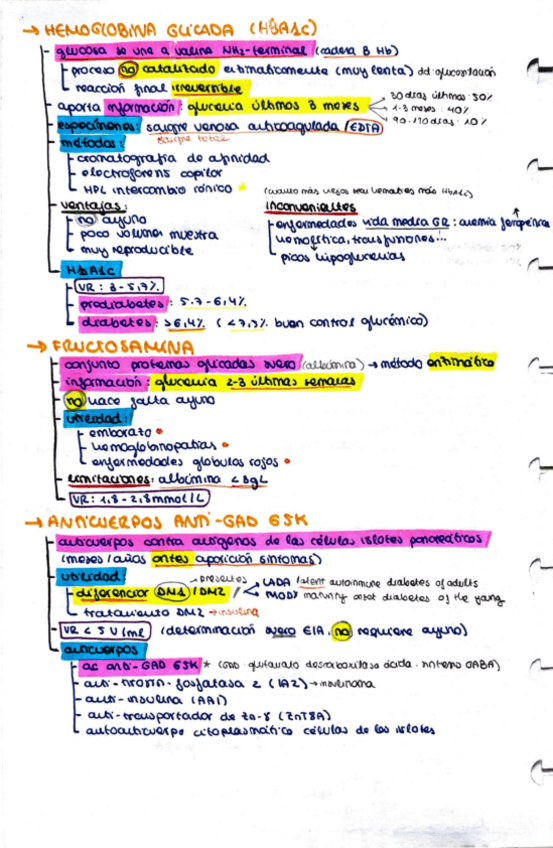 → HEMOGLOBINA GLICADA (HBA1c)
- glucosa se une a valina NH₂-terminal (cadena B Hb)
- proceso no catalizado enzimaticamente (muy lenta) dd. glucosilación
- reacción final irreversible
- aporta información: glucemia últimos 3 meses
30 días últimos: 50%
1-3 meses: 40%
90-120 días: 10%
- especímenes: sangre venosa anticoagulada / EDTA
sangre total
- métodos:
- cromatografía de afinidad
- electroforesis capilar
- HPL intercambio iónico *
(cuanto más viejos los hematíes más HbA1c)
- ventajas:
- no ayuno
- poco volumen muestra
- muy reproducible
inconvenientes
- enfermedades vida media GR: anemia ferropénica
hemolítica, transfusiones...
- picos hipoglucemias
- HbA1c
- VR: 3-5,7%
- prediabetes: 5.7-6,4%
- diabetes: >6,4% (<7,3% buen control glucémico)
→ FRUCTOSAMINA
- conjunto proteínas glicadas suero (albúmina) → método enzimático
- información: glucemia 2-3 últimas semanas
- no hace falta ayuno
- utilidad:
- embarazo
- hemoglobinopatías
- enfermedades glóbulos rojos
- limitaciones: albúmina <3g/L
- VR: 1,8-2,8mmol/L
→ ANTICUERPOS ANTI-GAD 65K
- anticuerpos contra antígenos de las células islotes pancreáticos
(meses/años antes aparición síntomas)
- utilidad:
- diferenciar DM1 / DM2
presentes
LADA latent autoinmune diabetes of adults
MODY maturity onset diabetes of the young
- tratamiento DM2 → insulina
- VR < 5 U/ml (determinación suero EIA, no requiere ayuno)
- anticuerpos
- ac anti-GAD 65K * (GAD: glutamato descarboxilasa ácida. síntesis GABA)
- anti-tirosin-fosfatasa 2 (IA2) → insulinoma
- anti-insulina (AAI)
- anti-transportador de Zn-8 (ZnT8A)
- autoanticuerpo citoplasmático células de los islotes